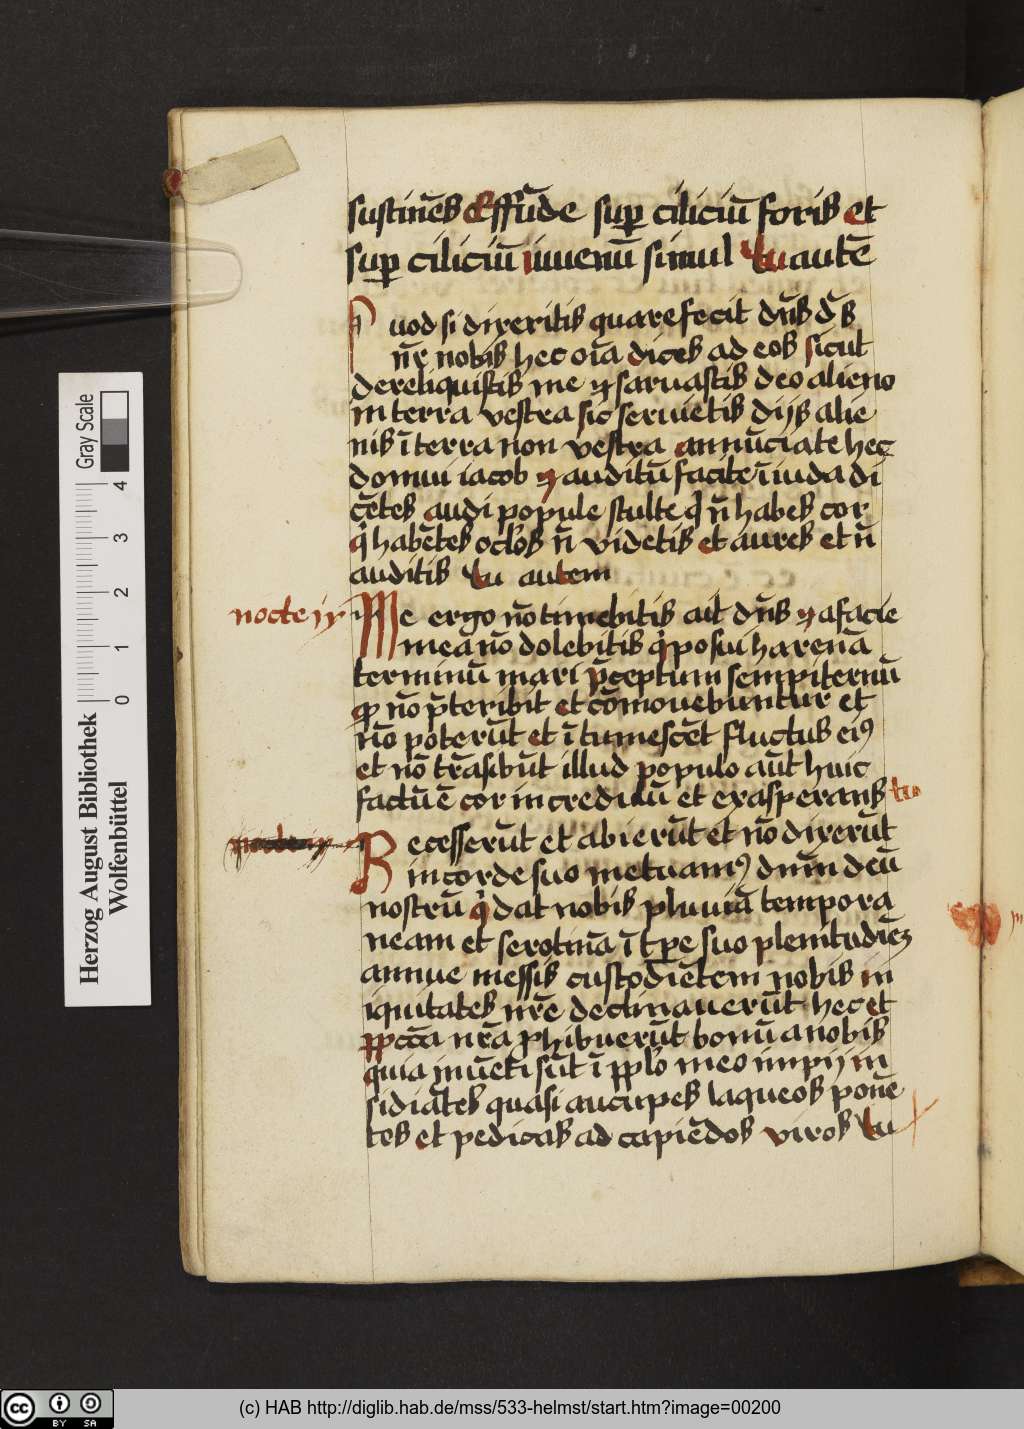 sustinēs Effūde sup ciliciū foris et
sup ciliciū iuuenū simul tu autē
uod si dixeritis quare fecit dn̄s dс̄
nr̄ nobis hec oīa dices ad eos sicut
dereliquistis me et saruastis deo alieno
in terra vestra sic seruietis dijs alie
nis ī terra non vestra annūciate hec
domui iacob et auditū facite ī iuda di
cētes audi popule stulte q n̄ habes cor
q habētes oclos n̄ videtis et aures et n̄
auditis tu autem
nocte ij
Me ergo nō timebitis ait dn̄s et a facie
mea nō dolebitis q posui harenā
terminū mari p̄ceptum sempiternū
qp nō p̄teribit et cōmouebuntur et
nō poterūt et ītumescēt fluctus eiꝰ
et nō trāsibūt illud populo aūt huic
factū ē cor incredulū et exasperans tu
Recesserūt et abierūt et nō dixerūt
in corde suo metuamꝰ dnm̄ deū
nostrū q dat nobis pluuiā tempora
neam et serotinā ī tpe suo plenitudiēꝫ
annue messis custodiētem nobis in
iquitates nrē declinauerūt hec et
ppccā nrā phibuerūt bonū a nobis
quia inuēti sūt ī pplo meo impij in
sidiātes quasi aucupes laqueos ponē
tes et pedicas ad capiēdos viros tu
Herzog August Bibliothek
Wolfenbüttel
0 1 2 3 4
Gray Scale
cc BY SA
(c) HAB http://diglib.hab.de/mss/533-helmst/start.htm?image=00200